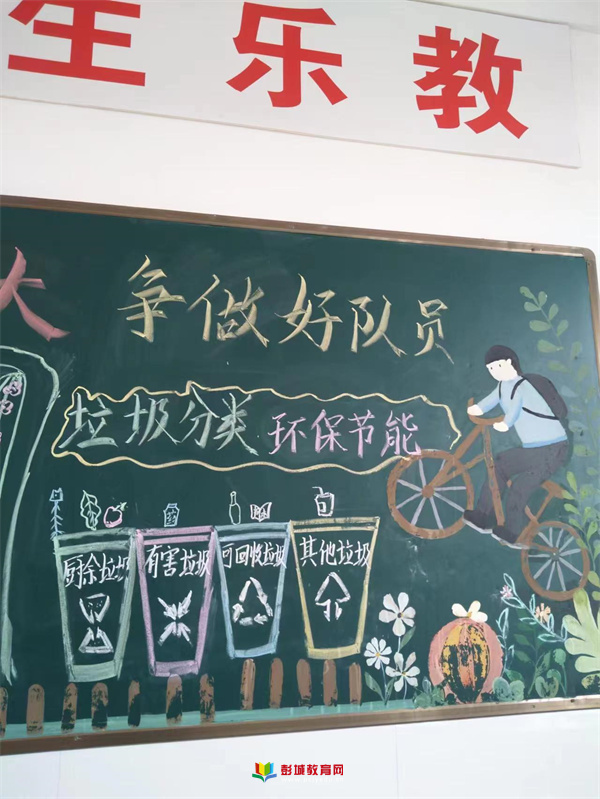 生乐教
大 争做好队员
垃圾分类 环保节能
厨余垃圾 有害垃圾 可回收垃圾 其他垃圾
彭城教育网